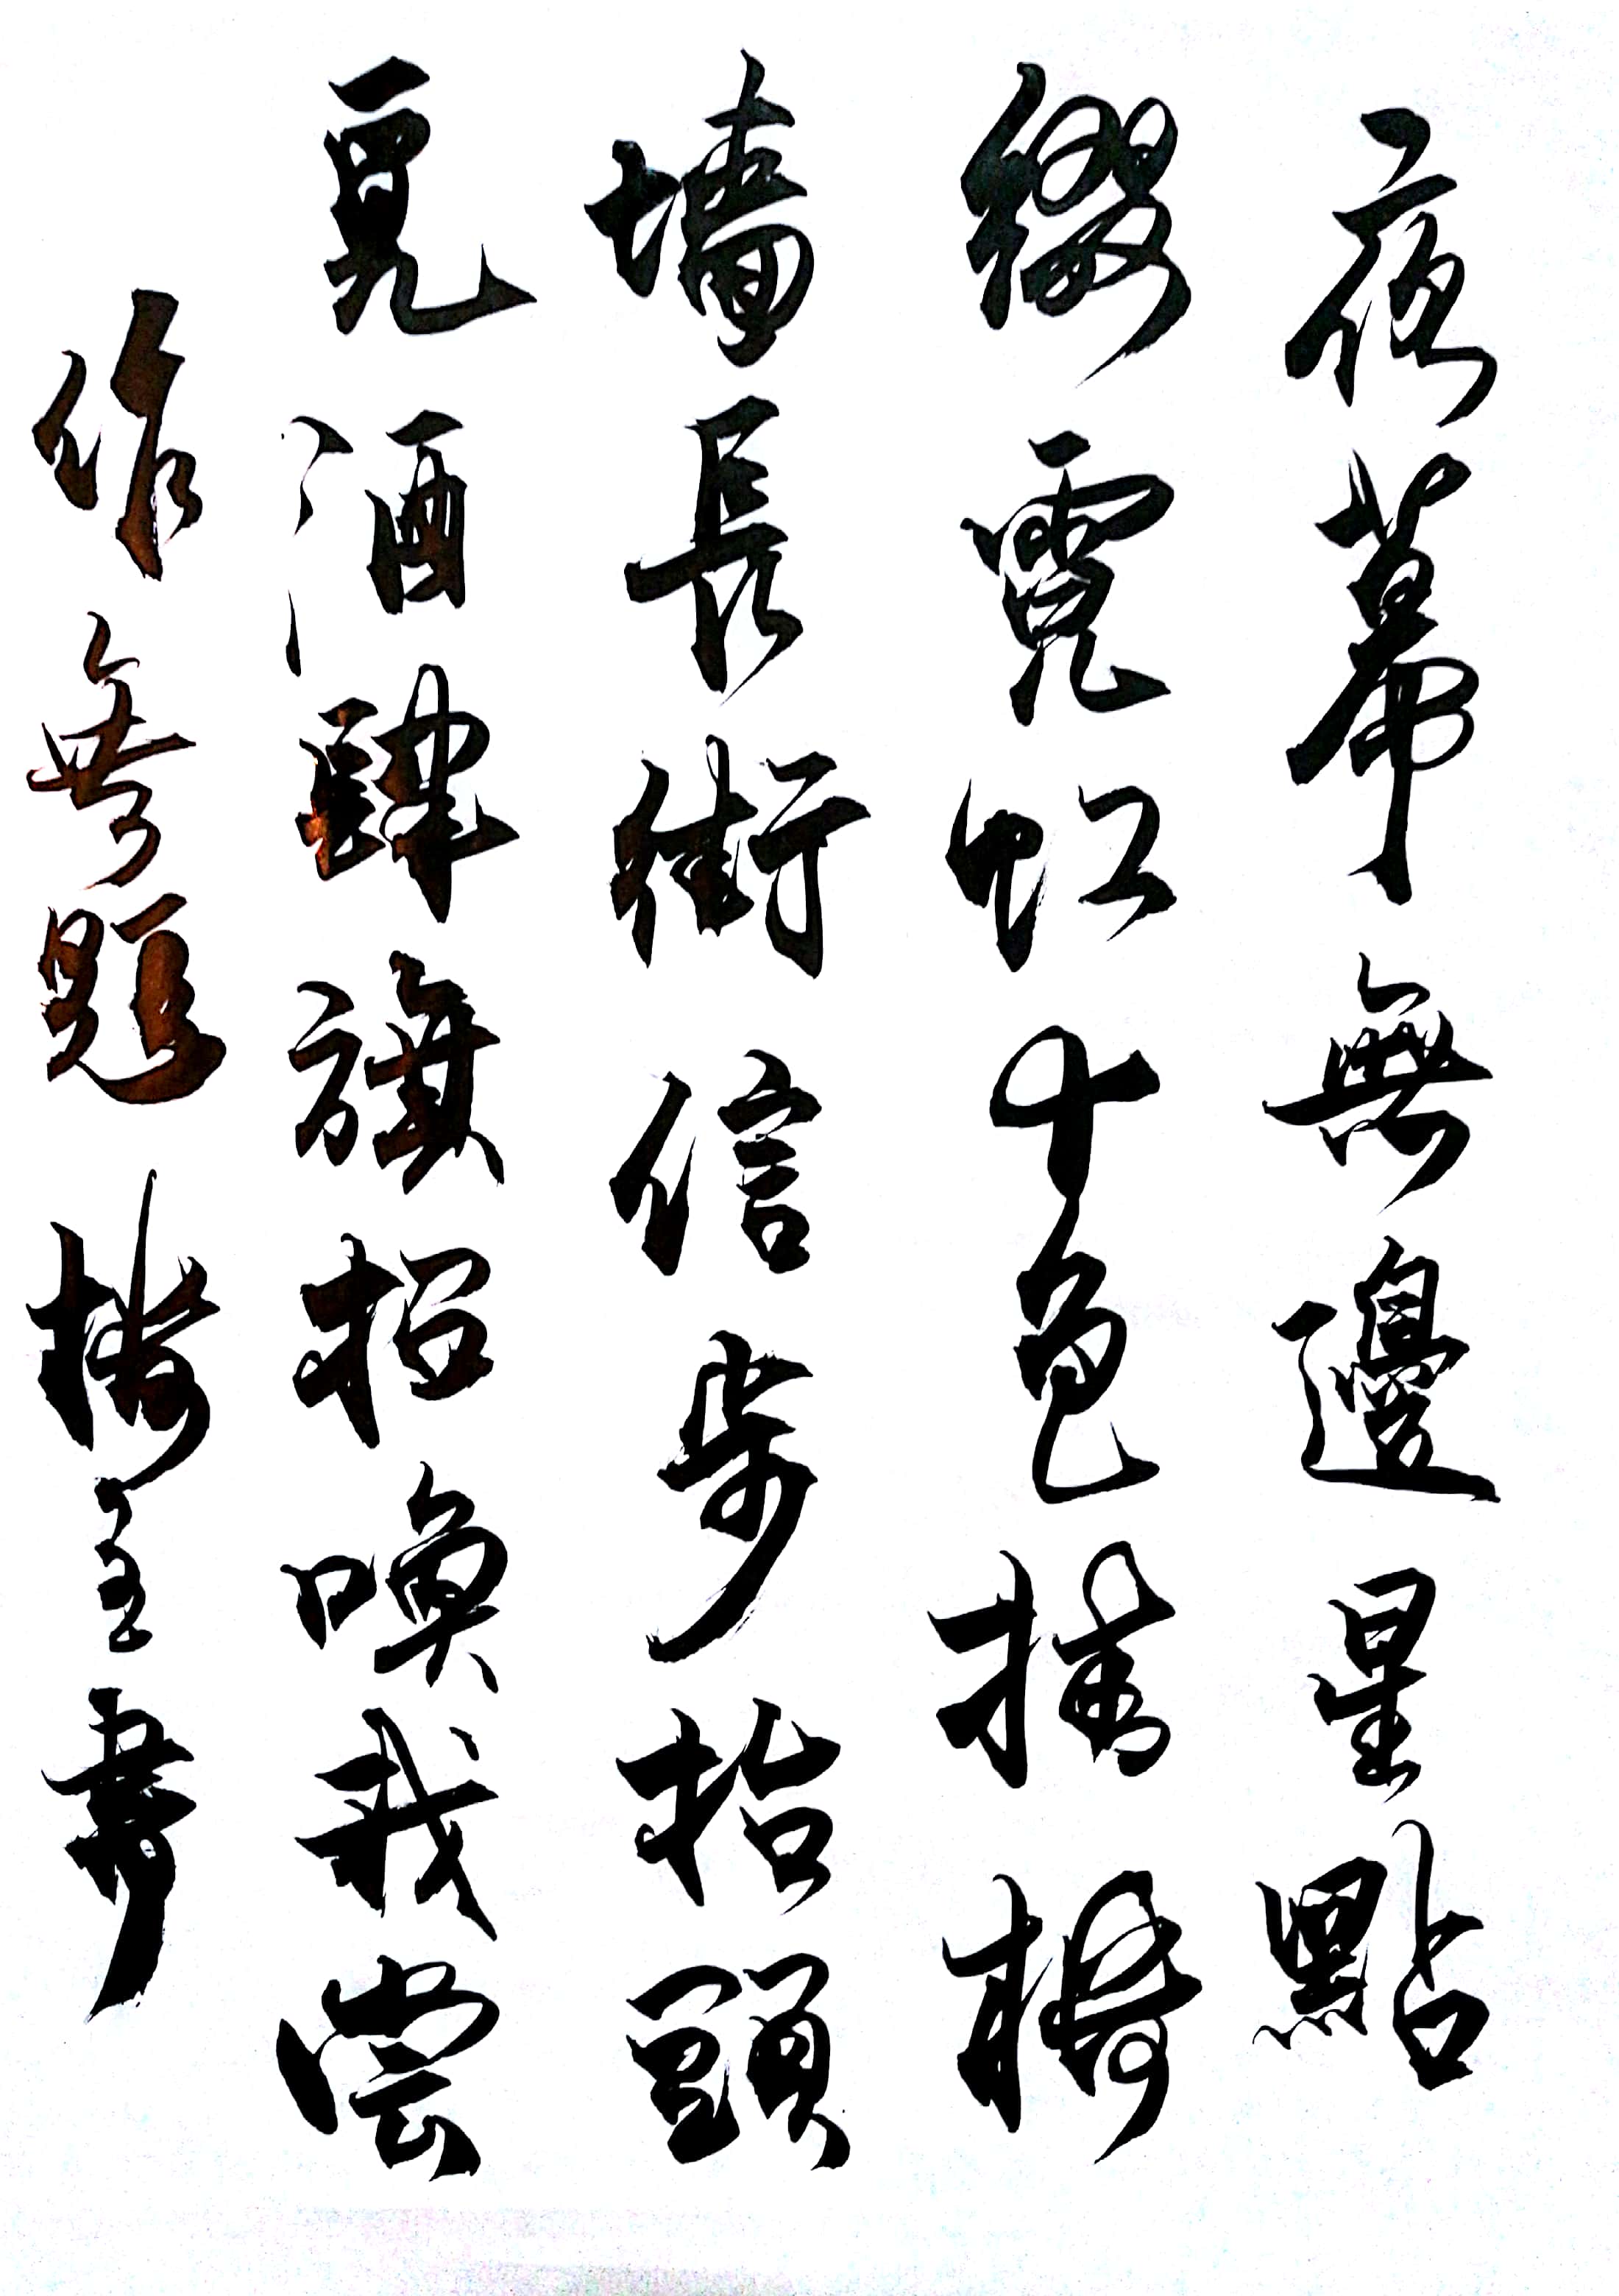 夜幕無邊星點
綴霓虹十色描樓
墻長街信步抬頭
覓酒肆旗招喚我嘗
作無題 樓主書